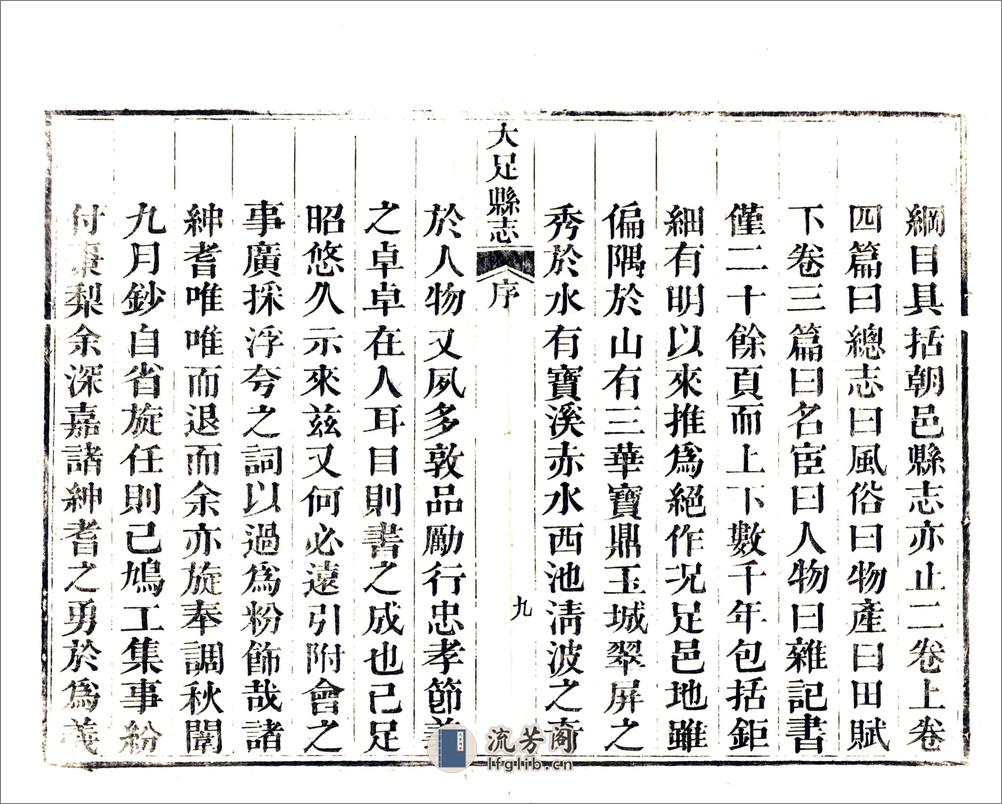 綱目具括朝邑縣志亦止二卷上卷
四篇曰總志曰風俗曰物產曰田賦
下卷三篇曰名宦曰人物曰雜記書
僅二十餘頁而上下數千年包括鉅
細有明以來推為絕作况足邑地雖
偏隅於山有三華寶鼎玉城翠屏之
秀於水有寶溪赤水西池淸波之奇
大足縣志
序
九
於人物又夙多敦品勵行忠孝節義
之卓卓在人耳目則書之成也已足
昭悠久示來茲又何必遠引附會之
事廣採浮夸之詞以過為粉飾哉諸
紳耆唯唯而退而余亦旋奉調秋闈
九月鈔自省旋任則已鳩工集事紛
付棗梨余深嘉諸紳耆之勇於為義
流芳阁
lfglib.cn